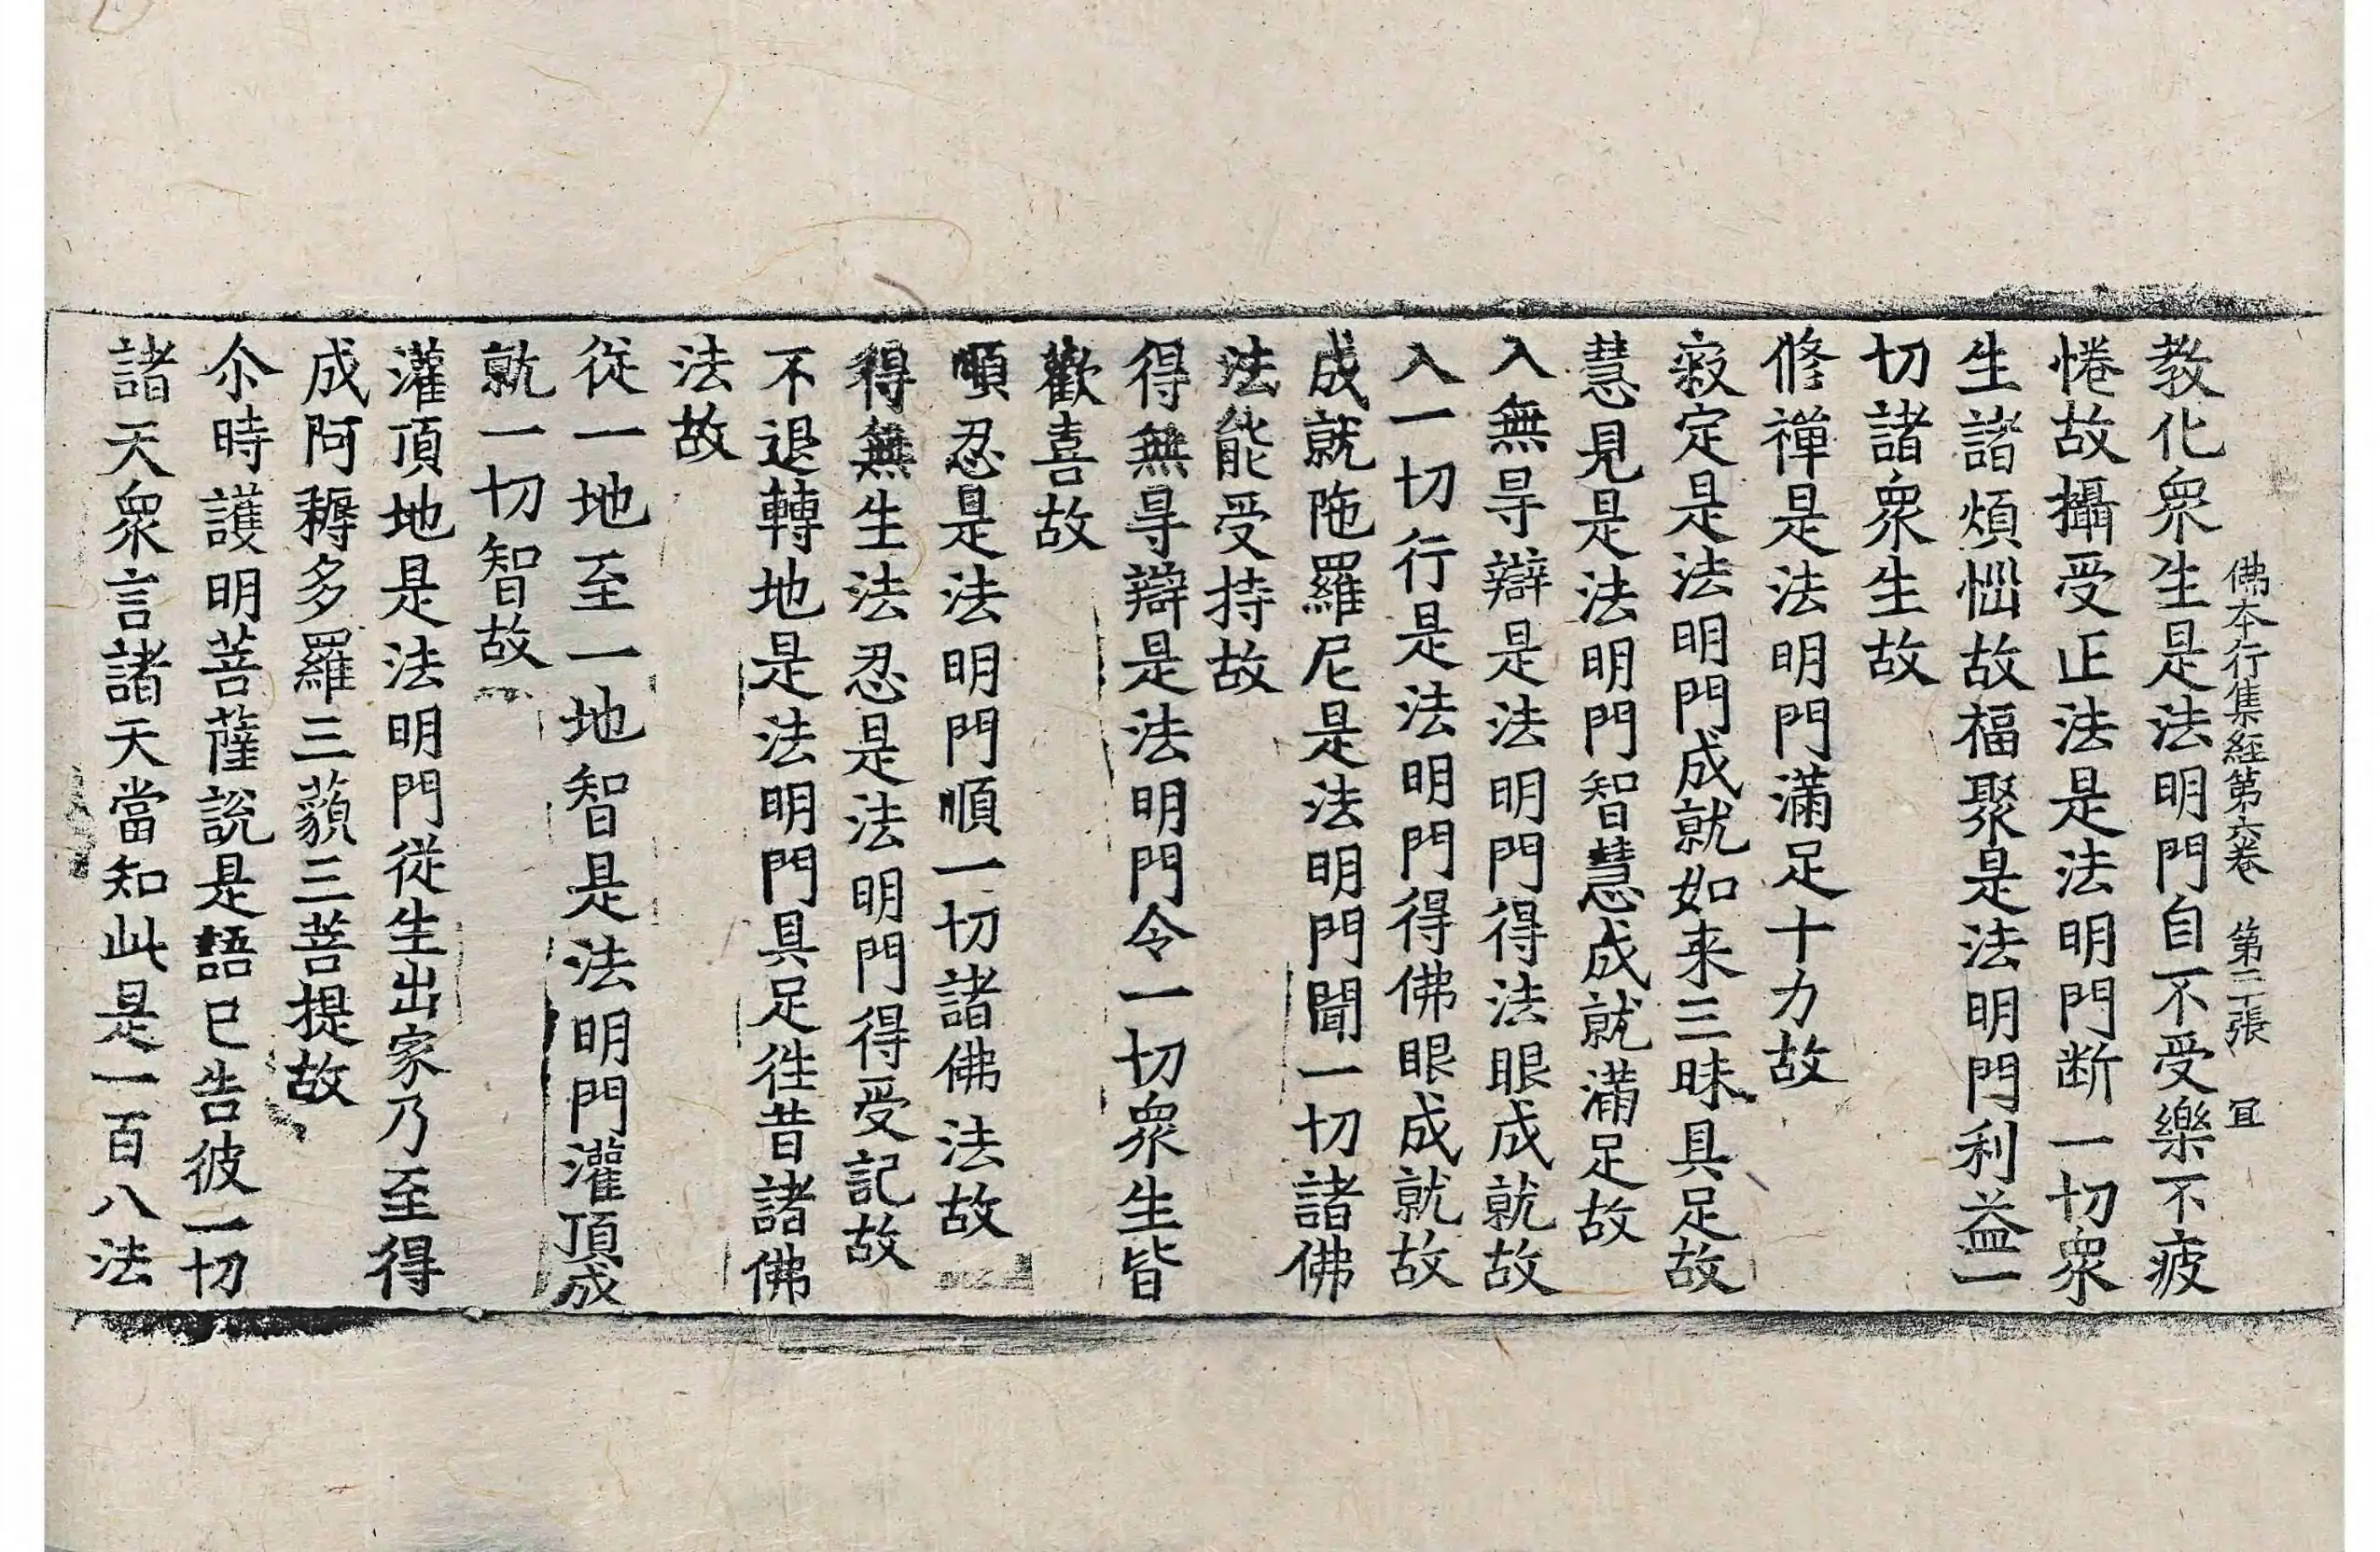 佛本行集經第六卷　第二張　冝
教化衆生是法明門自不受樂不疲
惓故攝受正法是法明門断一切衆
生諸煩惱故福聚是法明門利益一
切諸衆生故
修禅是法明門滿足十力故
寂定是法明門成就如来三昧具足故
慧見是法明門智慧成就滿足故
入無㝵辯是法明門得法眼成就故
入一切行是法明門得佛眼成就故
成就陁羅尼是法明門聞一切諸佛
法能受持故
得無㝵辯是法明門令一切衆生皆
歡喜故
順忍是法明門順一切諸佛法故
得無生法忍是法明門得受記故
不退轉地是法明門具足徃昔諸佛
法故
從一地至一地智是法明門灌頂成
就一切智故
灌頂地是法明門從生出家乃至得
成阿耨多羅三藐三菩提故
尒時護明菩薩說是語已告彼一切
諸天衆言諸天當知此是一百八法